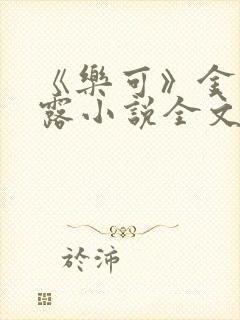 《樂可》金
露小説全文
於沛